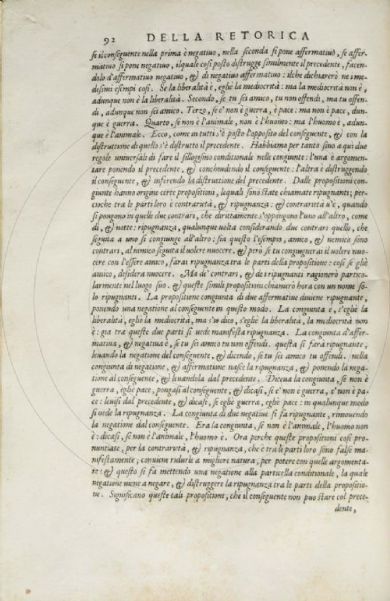 92 DELLA RETORICA
se il conseguente nella prima è negatiuo, nella seconda si pone affermatiuo, se affer-
matiuo si pone negatiuo, il quale così posto distrugge similmente il precedente, facen-
dolo d'affermatiuo negatiuo, & di negatiuo affermatiuo: il che dichiarerò ne i me-
desimi esempi così. Se la liberalità è, egli è la mediocrità: ma la mediocrità non è,
adunque non è la liberalità. Secondo, se tu sei amico, tu non offendi, ma tu offen-
di, adunque non sei amico. Terzo, se e' non è guerra, è pace: ma non è pace, dun-
que è guerra. Quarto, se non è l'animale, non è l'huomo: ma l'huomo è, adun-
que è l'animale. Ecco, come in tutti, s'è posto l'opposito del conseguente, & con la
distruttione di quello s'è distrutto il precedente. Habbiamo per tanto sino a qui due
regole uniuersali di fare il sillogismo conditionale nelle congiunte: l'una è argomen-
tare ponendo il precedente, & conchiudendo il conseguente: l'altra è distruggendo
il conseguente, & inferendo la distruttione del precedente. Dalle propositioni con-
giunte hanno origine certe propositioni, le quali sono state chiamate ripugnanti; per-
cioche tra le parti loro è contrarietà, & ripugnanza: & contrarietà u'è, quando
si pongono in quelle due contrari, che dirittamente s'oppongono l'uno all'altro, come
dì, & notte: ripugnanza, qualunque uolta considerando due contrari quello, che
seguita a uno si congiunge all'altro: sia questo l'esempio, amico, & nemico sono
contrari, al nemico seguita il uolere nuocere, & però se tu congiungerai il uolere nuo-
cere con l'essere amico, sarà ripugnanza tra le parti della propositione: così se gli è
amico, desidera nuocere. Ma de' contrari, & de i ripugnanti ragionerò partico-
larmente nel luogo suo, & queste simili propositioni chiamerò hora con un nome so-
lo ripugnanti. La propositione congiunta di due affermatiue diuiene ripugnante,
ponendo una negatione al conseguente in questo modo. La congiunta è, s'egli è la
liberalità, egli è la mediocrità, ma s'io dico, s'egli è la liberalità, la mediocrità non
è: già tra queste due parti si uede manifesta ripugnanza. La congiunta d'affer-
matiua, & negatiua è, se tu sei amico tu non offendi. questa si farà ripugnante,
leuando la negatione del conseguente, & dicendo, se tu sei amico tu offendi. nella
congiunta di negatione, & affermatione nasce la ripugnanza, & ponendo la nega-
tione al conseguente, & leuandola dal precedente. Diceua la congiunta, se non è
guerra, egli è pace, pongasi al conseguente, & dicasi, se e' non è guerra, e' non è pa-
ce: leuisi dal precedente, & dicasi, se egli è guerra, egli è pace: in qualunque modo
si uede la ripugnanza. La congiunta di due negatiue si fa ripugnante, rimouendo
la negatione dal conseguente. Era la congiunta, se non è l'animale, l'huomo non
è: dicasi, se non è l'animale, l'huomo è. Ora perche queste propositioni così pro-
nuntiate, per la contrarietà, & ripugnanza, che è tra le parti loro sono false ma-
nifestamente; conuiene ridurle a migliore natura, per potere con quelle argomenta-
re: & questo si fa mettendo una negatione alla particella conditionale, la quale
negatione uiene a negare, & distruggere la ripugnanza tra le parti della propositio-
ne. Significano queste tali propositioni, che il conseguente non può stare col prece-
dente,